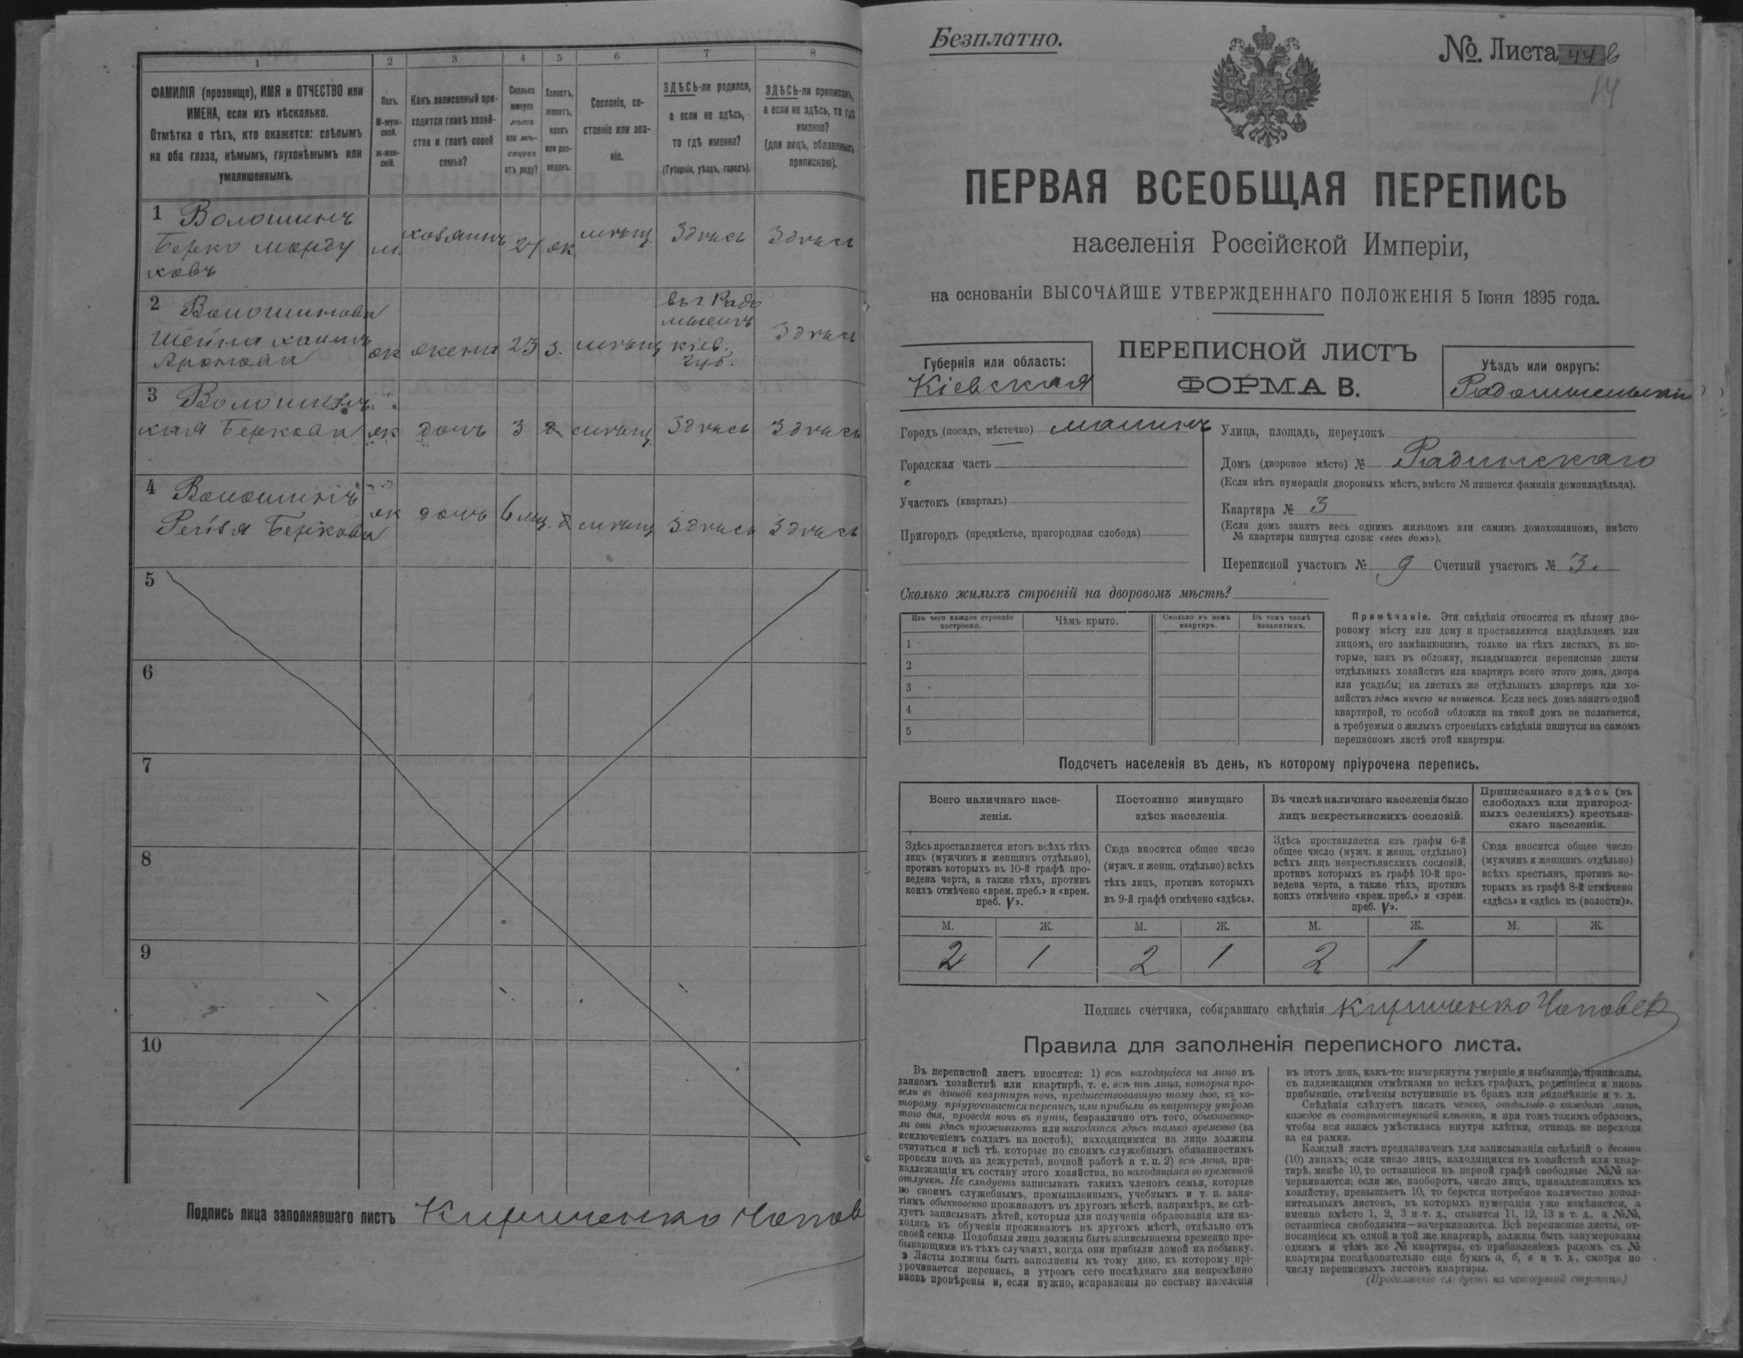 1 2 3 4 5 6 7 8
ФАМИЛІЯ (прозвище), ИМЯ и ОТЧЕСТВО или
ИМЕНА, если ихъ нѣсколько.
Отмѣтка о тѣхъ, кто окажется: слѣпымъ
на оба глаза, нѣмымъ, глухонѣмымъ или
умалишеннымъ.
Полъ.
М-муж-
ской.
Ж-жен-
скій.
Какъ записанный при-
ходится главѣ хозяй-
ства и главѣ своей
семьи?
Сколько
минуло
лѣтъ
или мѣ-
сяцевъ
отъ роду?
Холостъ,
женатъ,
вдовъ
или раз-
веденъ.
Сословіе, со-
стояніе или зва-
ніе.
ЗДѢСЬ-ли родился,
а если не здѣсь,
то гдѣ именно?
(Губернія, уѣздъ, городъ).
ЗДѢСЬ-ли приписанъ,
а если не здѣсь, то гдѣ
именно?
(для лицъ, обязанныхъ
припискою).
1 Волошинъ
Берко Морду
ховъ
м. хозяинъ ж. мѣщ. Здѣсь Здѣсь
2 Волошинова
Шейна
ж жена 23 з. мѣщ
кіев.
губ.
Здѣсь
3
Беркова ж дочь 3 мѣщ Здѣсь Здѣсь
4 Волошинъ
Беркова ж дочь 6 мѣщ Здѣсь Здѣсь
5
6
7
8
9
10
Подпись лица заполнявшаго листъ Кириченко
Безплатно.
№. Листа
14
ПЕРВАЯ ВСЕОБЩАЯ ПЕРЕПИСЬ
населенія Россійской Имперіи,
на основаніи ВЫСОЧАЙШЕ УТВЕРЖДЕННАГО ПОЛОЖЕНІЯ 5 Іюня 1895 года.
Губернія или область:
Кіевская
ПЕРЕПИСНОЙ ЛИСТЪ
ФОРМА В.
Уѣздъ или округъ:
Радомысльскій
Городъ (посадъ, мѣстечко) Малинъ
Городская часть
Участокъ (кварталъ)
Пригородъ (предмѣстье, пригородная слобода)
Улица, площадь, переулокъ
Домъ (дворовое мѣсто) № Радинскаго
(Если нѣтъ нумераціи дворовыхъ мѣстъ, вмѣсто № пишется фамилія домовладѣльца).
Квартира № 3
(Если домъ занятъ весь однимъ жильцомъ или самимъ домохозяиномъ, вмѣсто
№ квартиры пишутся слова: «весь домъ»).
Переписной участокъ № 9 Счетный участокъ № 3.
Сколько жилыхъ строеній на дворовомъ мѣстѣ?
Изъ чего каждое строеніе
построено.
Чѣмъ крыто.
Сколько въ немъ
квартиръ.
Въ томъ числѣ
незанятыхъ.
1
2
3
4
5
Примѣчаніе. Эти свѣдѣнія относятся къ цѣлому дво-
ровому мѣсту или дому и проставляются владѣльцемъ или
лицомъ, его замѣняющимъ, только на тѣхъ листахъ, въ ко-
торые, какъ въ обложку, вкладываются переписные листы
отдѣльныхъ хозяйствъ или квартиръ всего этого дома, двора
или усадьбы; на листахъ же отдѣльныхъ квартиръ или хо-
зяйствъ здѣсь ничего не пишется. Если весь домъ занятъ одной
квартирой, то особой обложки на такой домъ не полагается,
а требуемыя о жилыхъ строеніяхъ свѣдѣнія пишутся на самомъ
переписномъ листѣ этой квартиры.
Подсчетъ населенія въ день, къ которому пріурочена перепись.
Всего наличнаго насе-
ленія.
Здѣсь проставляется итогъ всѣхъ тѣхъ
лицъ (мужчинъ и женщинъ отдѣльно),
противъ которыхъ въ 10-й графѣ про-
ведена черта, а также тѣхъ, противъ
коихъ отмѣчено «врем. преб.» и «врем.
преб. V».
Постоянно живущаго
здѣсь населенія.
Сюда вносится общее число
(мужч. и женщ. отдѣльно) всѣхъ
тѣхъ лицъ, противъ которыхъ
въ 9-й графѣ отмѣчено «здѣсь».
Въ числѣ наличнаго населенія было
лицъ некрестьянскихъ сословій.
Здѣсь проставляется изъ графы 6-й
общее число (мужч. и женщ. отдѣльно)
всѣхъ лицъ некрестьянскихъ сословій,
противъ которыхъ въ графѣ 10-й про-
ведена черта, а также тѣхъ, противъ
коихъ отмѣчено «врем. преб.» и «врем.
преб. V».
Приписаннаго здѣсь (въ
слободахъ или пригород-
ныхъ селеніяхъ) крестьян-
скаго населенія.
Сюда вносится общее число
(мужчинъ и женщинъ отдѣльно)
всѣхъ крестьянъ, противъ ко-
торыхъ въ графѣ 8-й отмѣчено
«здѣсь» и «здѣсь къ (волости)».
М. Ж. М. Ж. М. Ж. М. Ж.
2 1 2 1 2 1
Подпись счетчика, собиравшаго свѣдѣнія Кириченко
Правила для заполненія переписного листа.
Въ переписной листъ вносятся: 1) всѣ находящіеся на лицо въ
данномъ хозяйствѣ или квартирѣ, т. е. всѣ тѣ лица, которыя про-
вели въ данной квартирѣ ночь, предшествовавшую тому дню, къ ко-
торому пріурочивается перепись, или прибыли въ квартиру утромъ
того дня, проведя ночь въ пути, безразлично отъ того, обыкновенно-
ли они здѣсь проживаютъ или находятся здѣсь только временно (за
исключеніемъ солдатъ на постоѣ); находящимися на лицо должны
считаться и всѣ тѣ, которые по своимъ служебнымъ обязанностямъ
провели ночь на дежурствѣ, ночной работѣ и т. п. 2) всѣ лица, при-
надлежащія къ составу этого хозяйства, но находящіяся во временной
отлучкѣ. Не слѣдуетъ записывать такихъ членовъ семьи, которые
по своимъ служебнымъ, промышленнымъ, учебнымъ и т. п. заня-
тіямъ обыкновенно проживаютъ въ другомъ мѣстѣ, напримѣръ, не слѣ-
дуетъ записывать дѣтей, которыя для полученія образованія или на-
ходясь въ обученіи проживаютъ въ другомъ мѣстѣ, отдѣльно отъ
своей семьи. Подобныя лица должны быть записываемы временно пре-
бывающими въ тѣхъ случаяхъ, когда они прибыли домой на побывку.
Листы должны быть заполнены къ тому дню, къ которому прі-
урочивается перепись, и утромъ сего послѣдняго дня непремѣнно
вновь провѣрены и, если нужно, исправлены по составу населенія
въ этотъ день, какъ-то: вычеркнуты умершіе и выбывшіе, приписаны,
съ надлежащими отмѣтками во всѣхъ графахъ, родившіеся и вновь
прибывшіе, отмѣчены вступившіе въ бракъ или овдовѣвшіе и т. д.
Свѣдѣнія слѣдуетъ писать четко, отдѣльно о каждомъ лицѣ,
каждое въ соотвѣтствующей клѣткѣ, и при томъ такимъ образомъ,
чтобы вся запись умѣстилась внутри клѣтки, отнюдь не переходя
за ея рамки.
Каждый листъ предназначенъ для записыванія свѣдѣній о десяти
(10) лицахъ; если число лицъ, находящихся въ хозяйствѣ или квар-
тирѣ, менѣе 10, то оставшіеся въ первой графѣ свободные №№ за-
черкиваются; если же, наоборотъ, число лицъ, принадлежащихъ къ
хозяйству, превышаетъ 10, то берется потребное количество допол-
нительныхъ листовъ, въ которыхъ нумерація уже измѣняется, а
именно вмѣсто 1, 2, 3 и т. д., ставится 11, 12, 13 и т. д., а №№,
оставшіеся свободными—зачеркиваются. Всѣ переписные листы, от-
носящіеся къ одной и той же квартирѣ, должны быть занумерованы
однимъ и тѣмъ же № квартиры, съ прибавленіемъ рядомъ съ №
квартиры послѣдовательно еще буквъ а, б, в и т. д., смотря по
числу переписныхъ листовъ квартиры.
(Продолженіе слѣдуетъ на четвертой страницѣ)